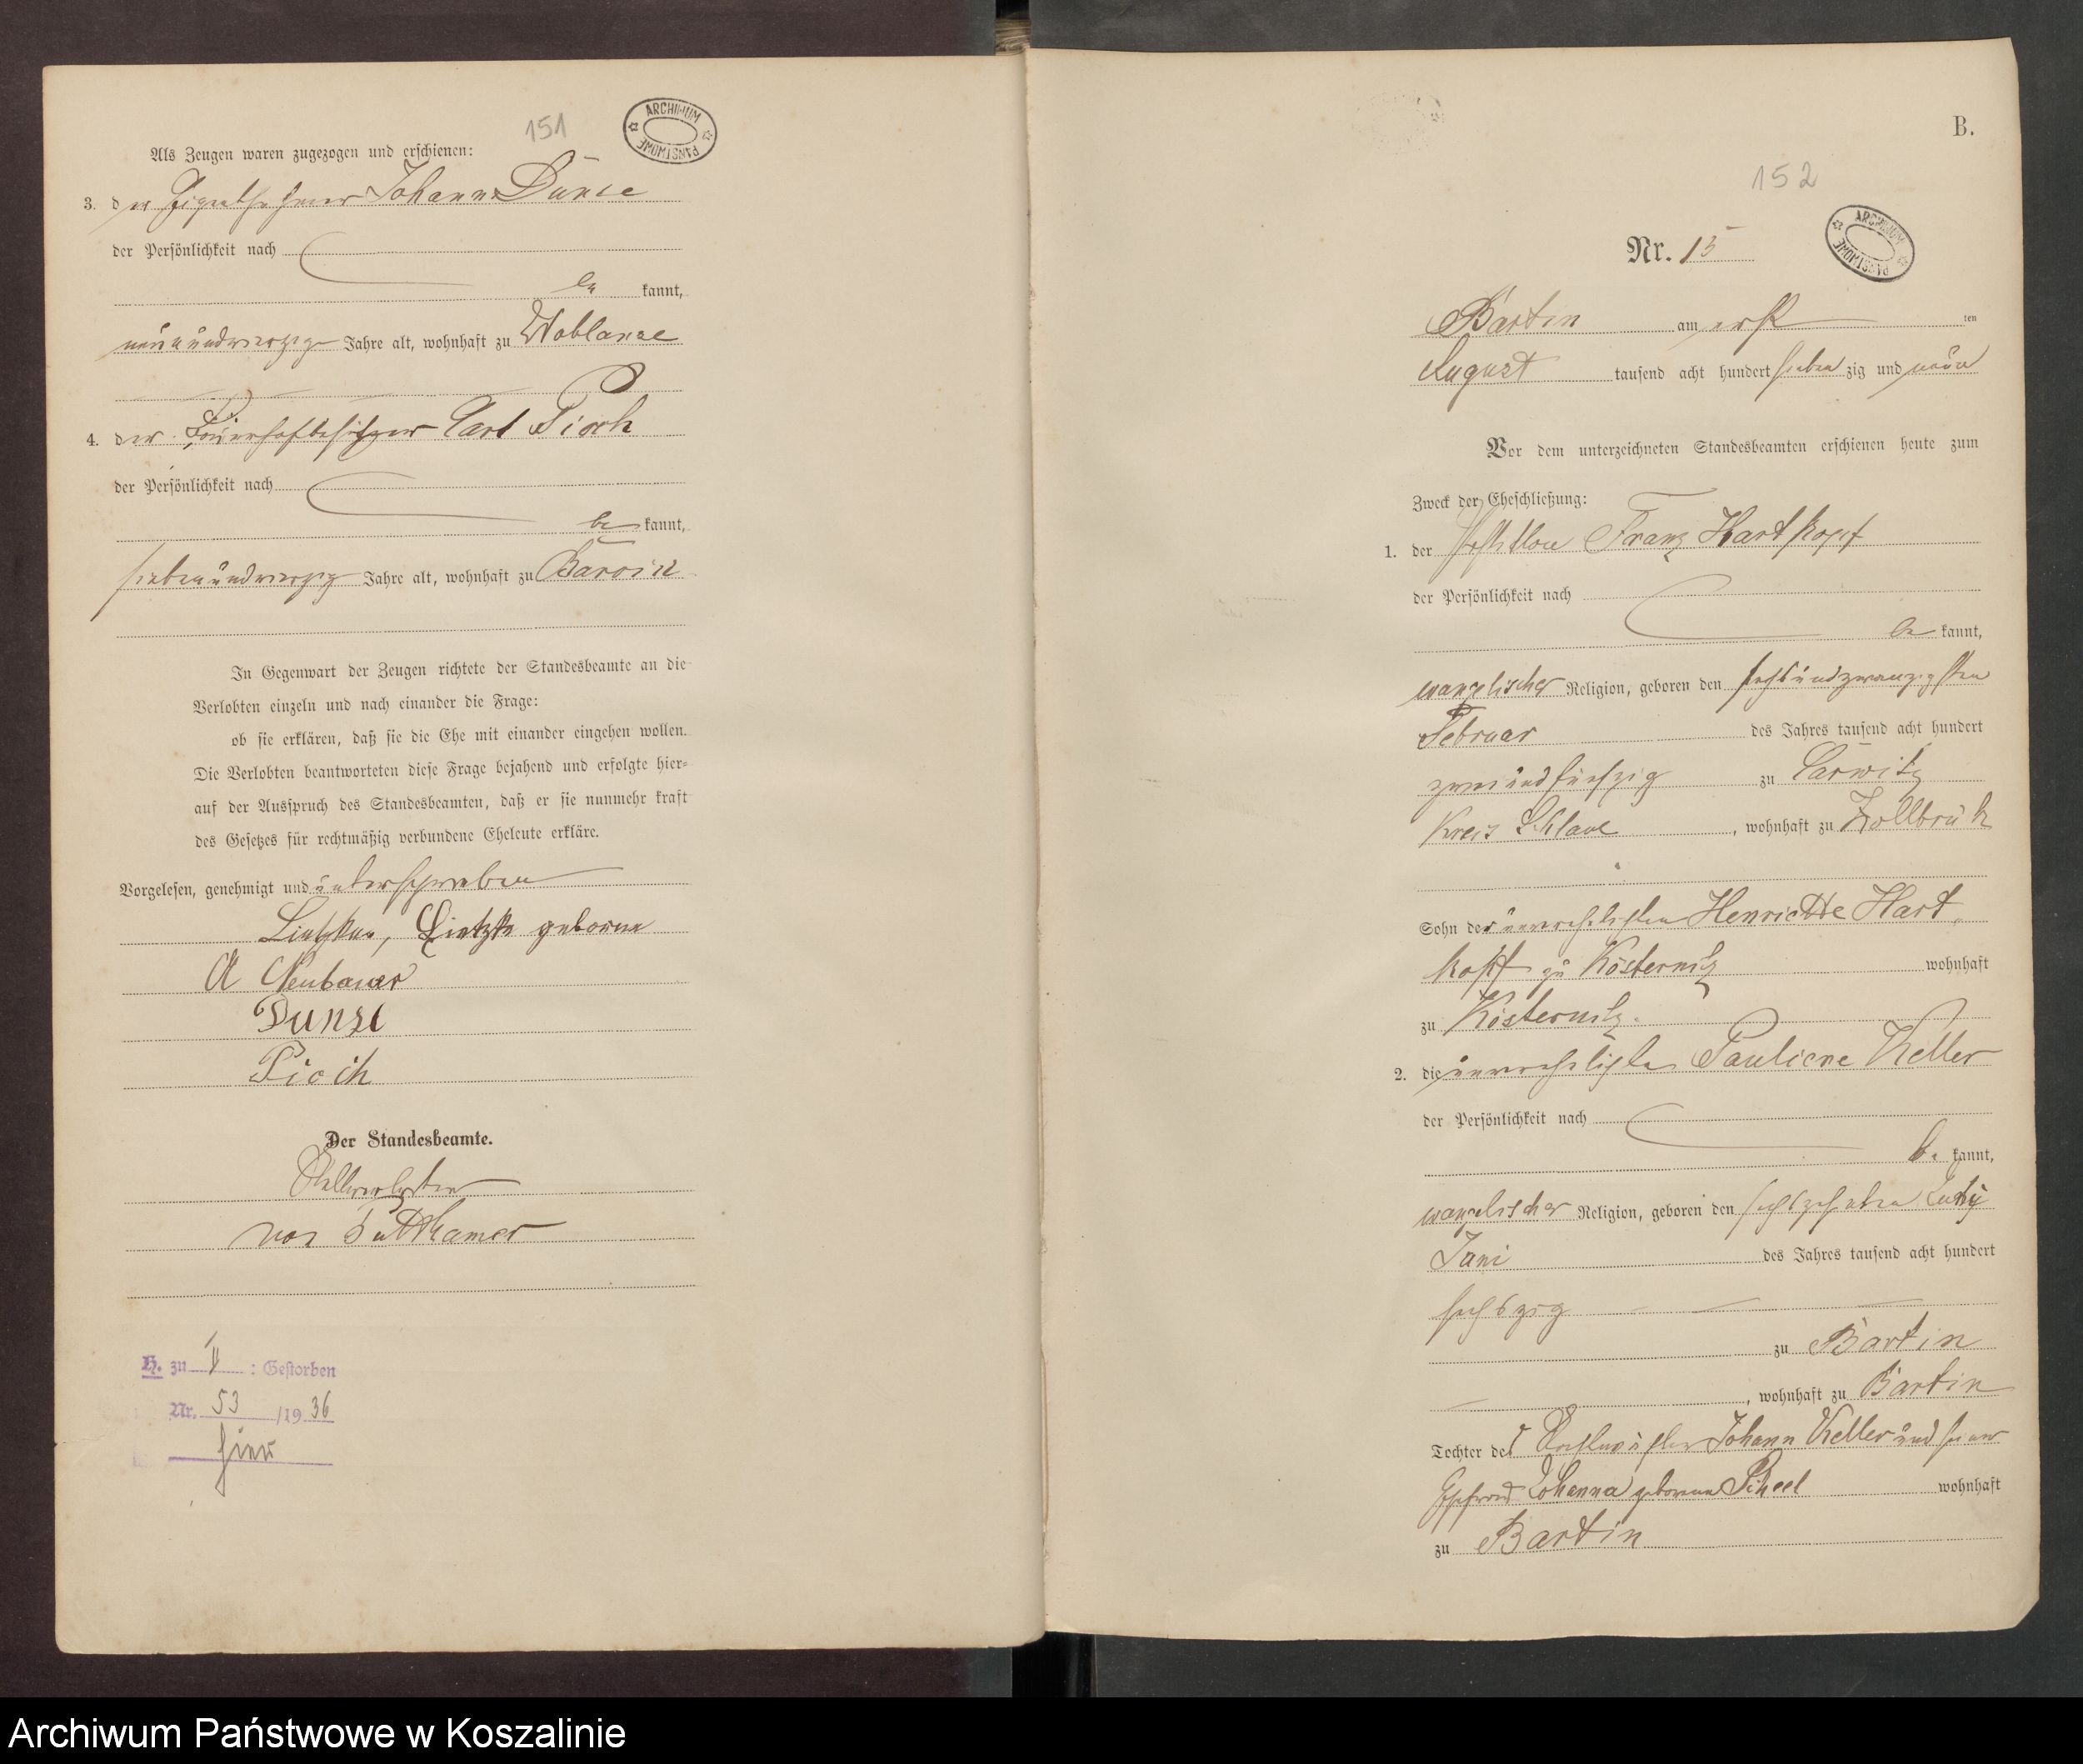 151
ARCHIWUM PAŃSTWOWE
Als Zeugen waren zugezogen und erschienen:
3. der Johann Dunse
der Persönlichkeit nach
be kannt,
neunundvierzig Jahre alt, wohnhaft zu Woblanse
4. der Bauerhofbesitzer Carl Pioch
der Persönlichkeit nach
be kannt,
siebenundvierzig Jahre alt, wohnhaft zu Barvin
In Gegenwart der Zeugen richtete der Standesbeamte an die
Verlobten einzeln und nach einander die Frage:
ob sie erklären, daß sie die Ehe mit einander eingehen wollen.
Die Verlobten beantworteten diese Frage bejahend und erfolgte hier-
auf der Ausspruch des Standesbeamten, daß er sie nunmehr kraft
des Gesetzes für rechtmäßig verbundene Eheleute erkläre.
Vorgelesen, genehmigt und unterschrieben
Lietzke geborne
A Neubauer
Dunse
Pioch
Der Standesbeamte.
Stellvertreter
von Puttkamer
H. zu II : Gestorben
Nr. 53 /19 36
hier
B.
152
ARCHIWUM PAŃSTWOWE
Nr. 15
Bartin am erst ten
August tausend acht hundert sieben zig und neun
Vor dem unterzeichneten Standesbeamten erschienen heute zum
Zweck der Eheschließung:
1. der Postillon Franz Hartkopf
der Persönlichkeit nach
be kannt,
evangelischer Religion, geboren den sechsundzwanzigsten
Februar des Jahres tausend acht hundert
zweiundfünfzig zu Carwitz
Kreis Schlawe, wohnhaft zu Zollbrück
Sohn der unverehelichten Henriette Hart
kopf zu Kösternitz wohnhaft
zu Kösternitz.
2. die unverehelichte Pauliene Keller
der Persönlichkeit nach
be kannt,
evangelischer Religion, geboren den sechszehnten
Juni des Jahres tausend acht hundert
sechszig
zu Bartin
, wohnhaft zu Bartin
Tochter des Johann Keller und seiner
Ehefrau Johanna geborene Scheel wohnhaft
zu Bartin
Archiwum Państwowe w Koszalinie